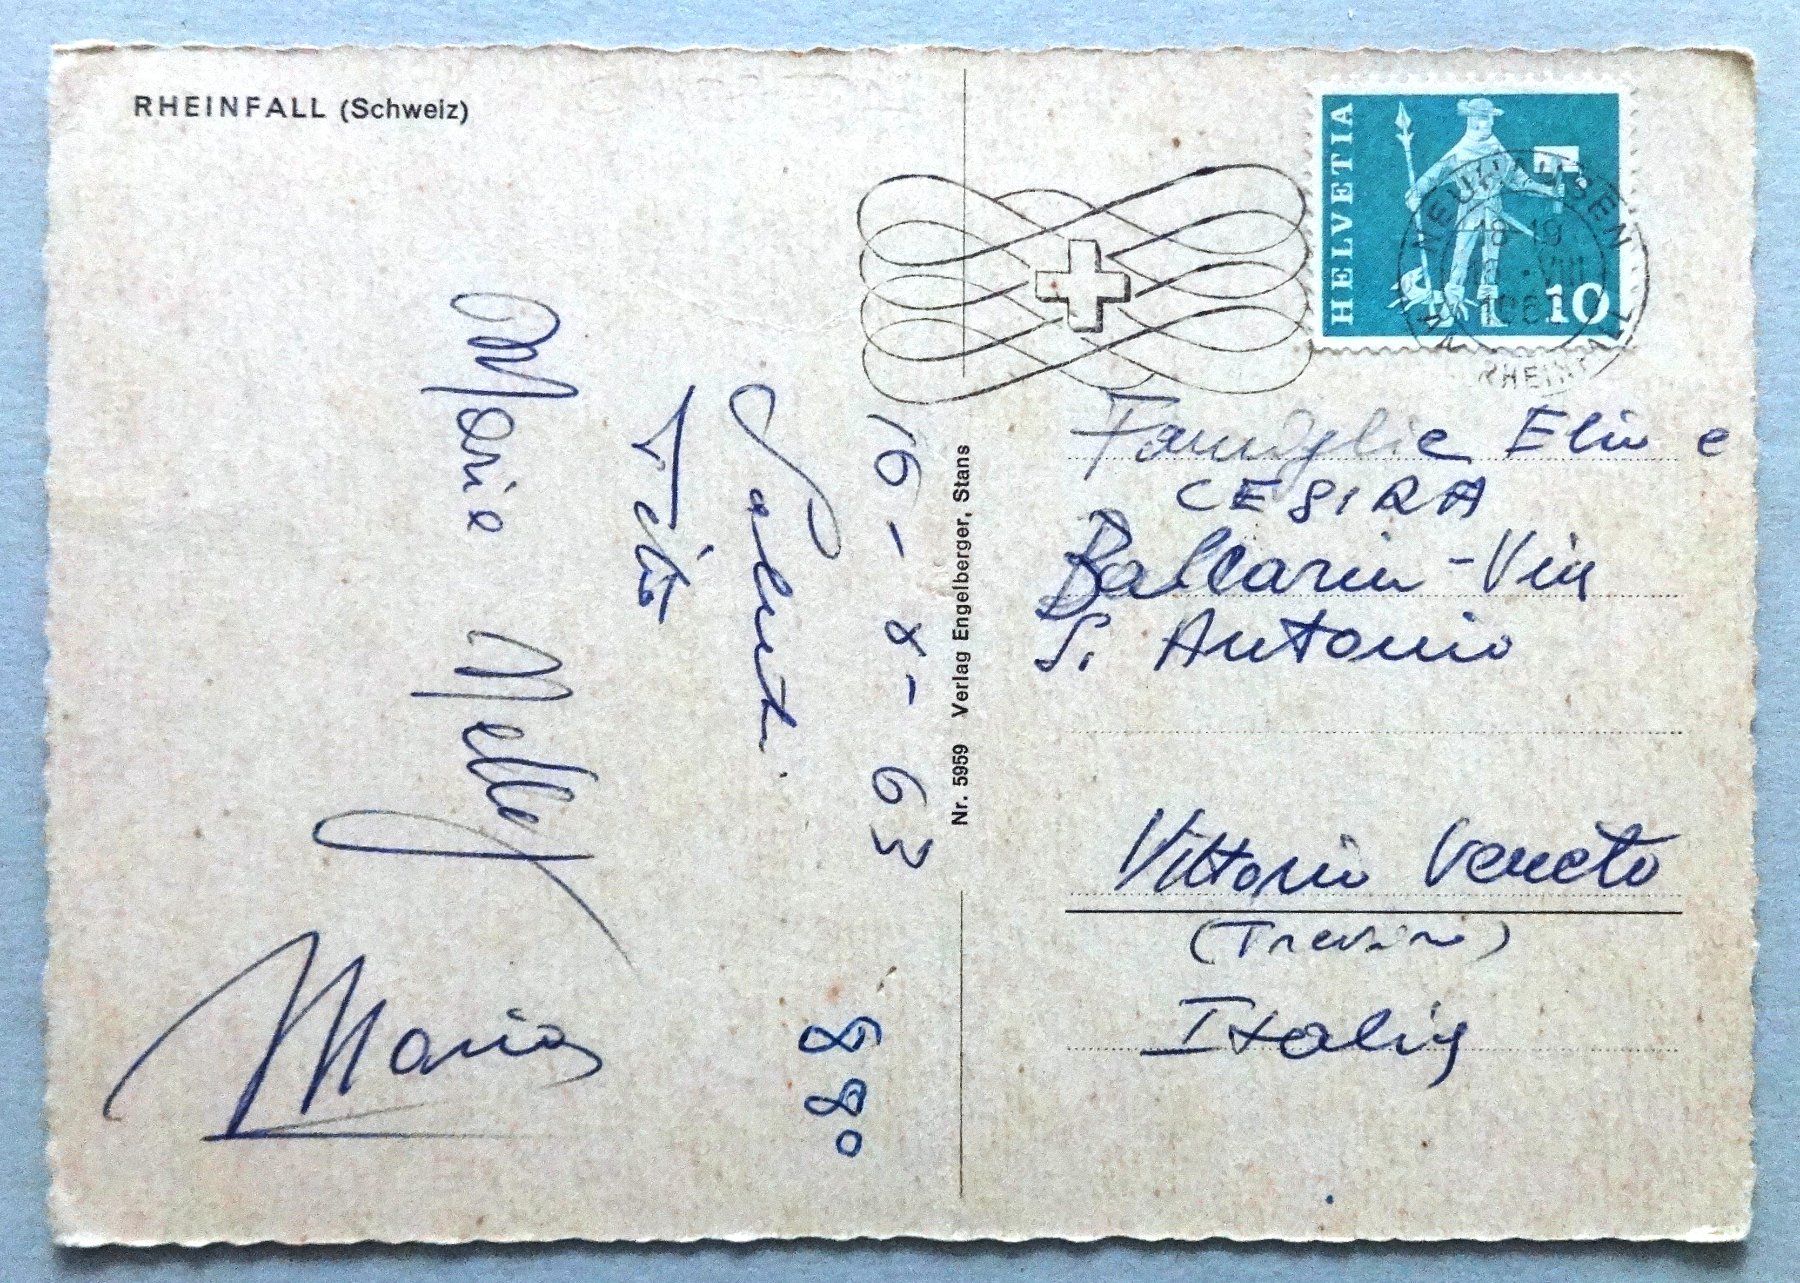 RHEINFALL (Schweiz)
16-8-63
Saluti
Maria Nelly
Maria
880
Nr. 5959 Verlag Engelberger, Stans
HELVETIA
10
NEUHAUSEN
18-19
VIII
AM RHEINFALL
Famiglia Elio e
CESIRA
Balcarin - Via
S. Antonio
Vittorio Veneto
(Treviso)
Italia